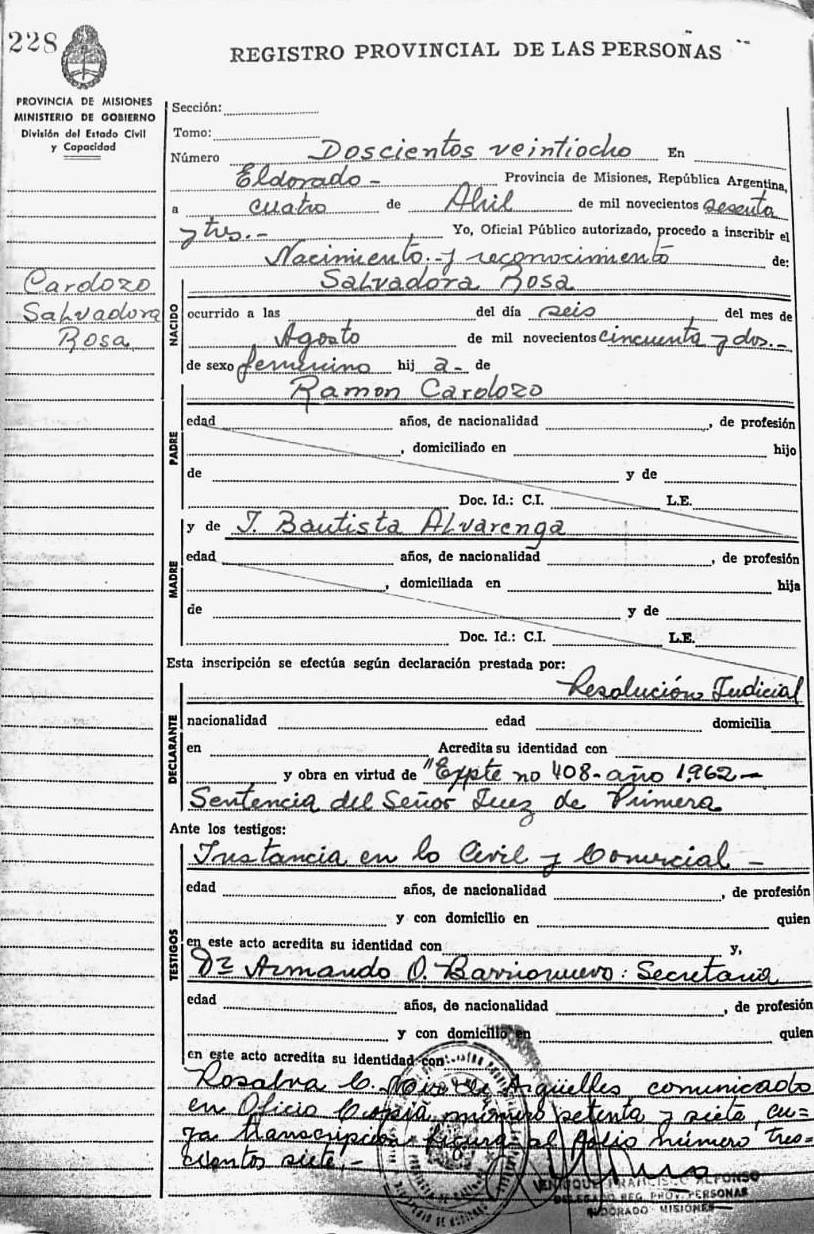 228
REGISTRO PROVINCIAL DE LAS PERSONAS
PROVINCIA DE MISIONES
MINISTERIO DE GOBIERNO
División del Estado Civil
y Capacidad
Sección:
Tomo:
Número Doscientos veintiocho En
Eldorado - Provincia de Misiones, República Argentina,
a cuatro de Abril de mil novecientos sesenta
y tres.- Yo, Oficial Público autorizado, procedo a inscribir el
Nacimiento.- y reconocimiento de:
Cardozo
Salvadora
Rosa
NACIDO
Salvadora Rosa
ocurrido a las del día seis del mes de
Agosto de mil novecientos cincuenta y dos.-
de sexo femenino hij a- de
Ramon Cardozo
PADRE
edad años, de nacionalidad , de profesión
, domiciliado en hijo
de y de
Doc. Id.: C.I. L.E.
y de J. Bautista Alvarenga
MADRE
edad años, de nacionalidad , de profesión
, domiciliada en hija
de y de
Doc. Id.: C.I. L.E.
Esta inscripción se efectúa según declaración prestada por:
Resolución Judicial
DECLARANTE
nacionalidad edad domicilia
en Acredita su identidad con
y obra en virtud de "Expte no 408-año 1962-
Sentencia del Señor Juez de Primera
Ante los testigos:
Instancia en lo Civil y Comercial -
TESTIGOS
edad años, de nacionalidad , de profesión
y con domicilio en quien
en este acto acredita su identidad con y,
Dr Armando O. Barrionuevo: Secretaria
edad años, de nacionalidad , de profesión
y con domicilio en quien
en este acto acredita su identidad con
Rosalva C. de Arguelles comunicado
en Oficio número setenta y siete, cu=
ya transcripción figura al folio número tres=
cientos siete.-
FRANCISCO ALFONSO
DELEGADO REG. PROV. PERSONAS
ELDORADO MISIONES